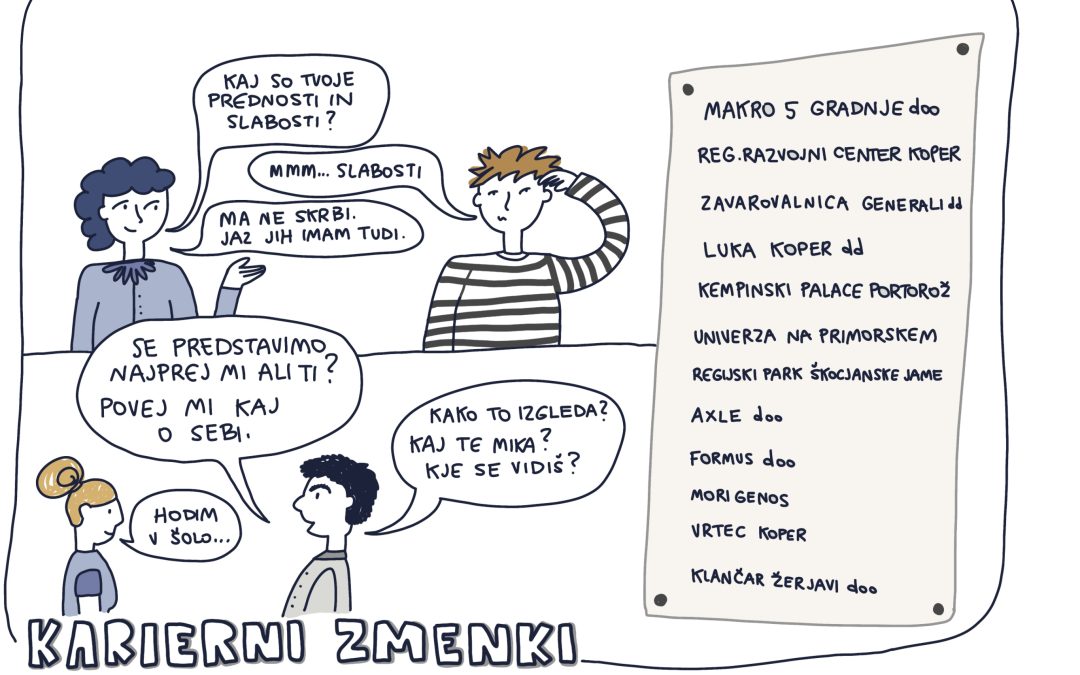 KAJ SO TVOJE
PREDNOSTI IN
SLABOSTI?
MMM... SLABOSTI
MA NE SKRBI.
JAZ JIH IMAM TUDI.
SE PREDSTAVIMO
NAJPREJ MI ALI TI?
POVEJ MI KAJ
O SEBI.
KAKO TO IZGLEDA?
KAJ TE MIKA?
KJE SE VIDIŠ?
HODIM
V ŠOLO...
KARIERNI ZMENKI
MAKRO 5 GRADNJE doo
REG.RAZVOJNI CENTER KOPER
ZAVAROVALNICA GENERALI dd
LUKA KOPER dd
KEMPINSKI PALACE PORTOROŽ
UNIVERZA NA PRIMORSKEM
REGIJSKI PARK ŠKOCJANSKE JAME
AXLE doo
FORMUS doo
MORIGENOS
VRTEC KOPER
KLANČAR ŽERJAVI doo